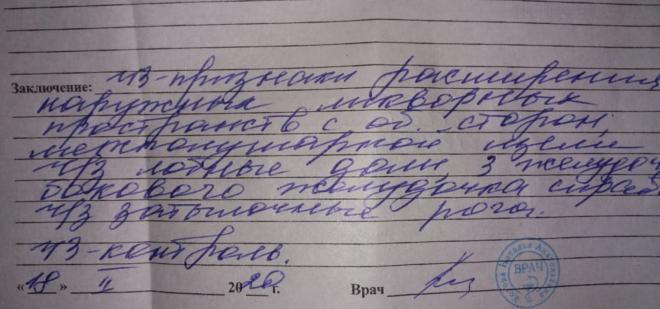 Заключение: УЗ-признаки расширения
наружных ликворных
пространств с об. сторон,
межполушарной щели
ч/з лобные доли, 3 желудоч
бокового желудочка справ
ч/з затылочные рога.
УЗ-контроль.
«18» II 2020 г. Врач
ВРАЧ